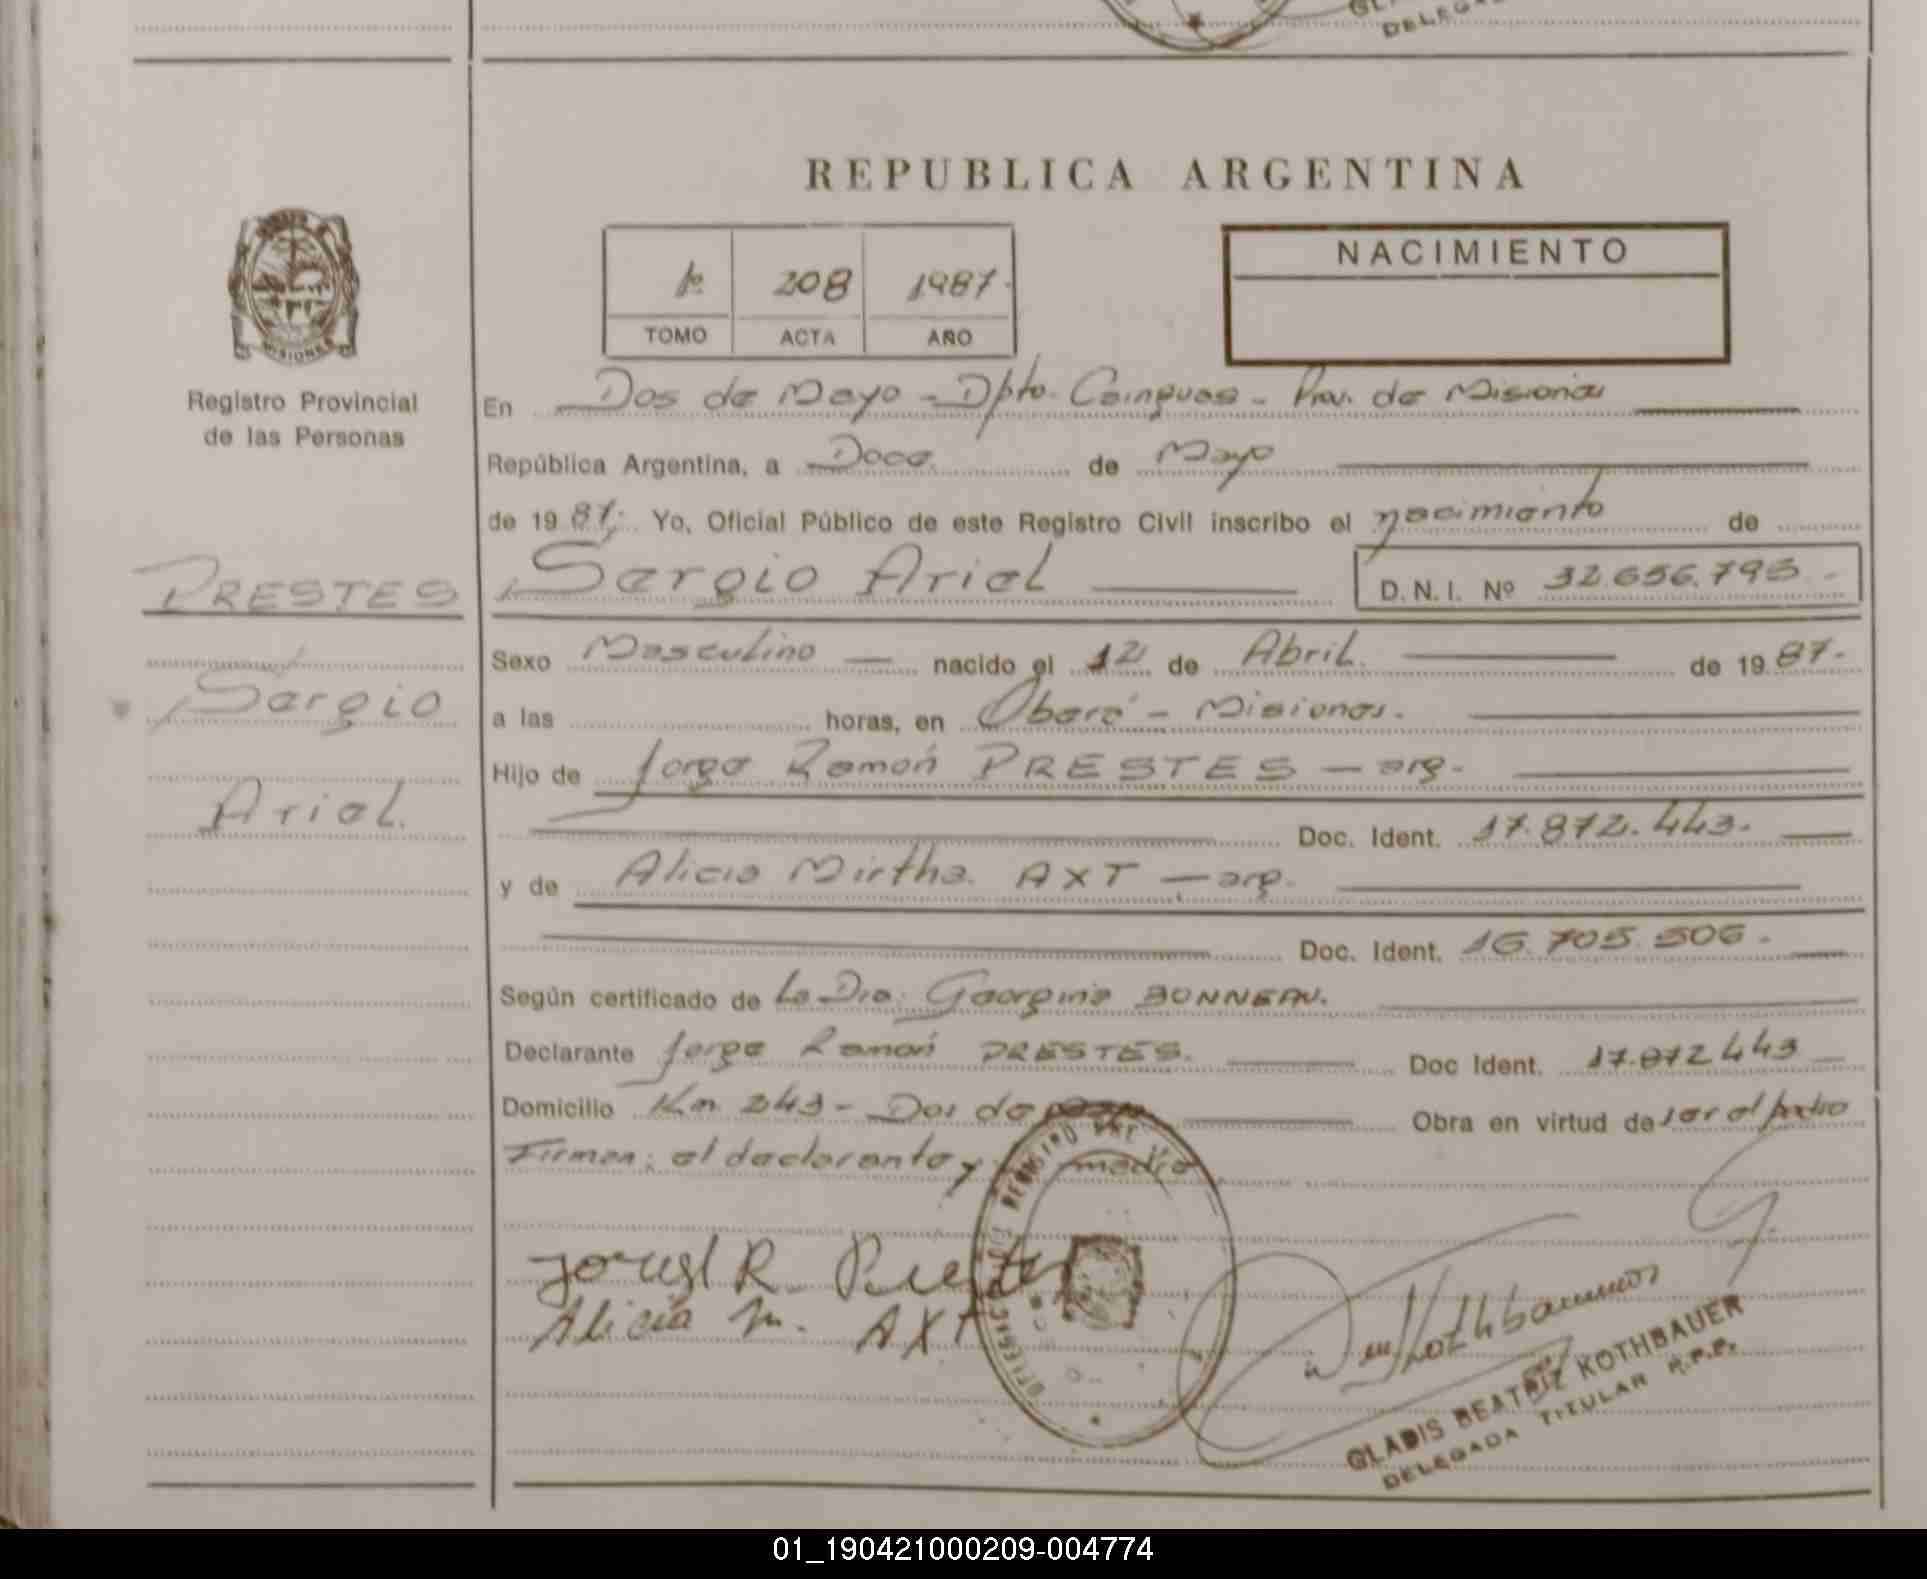 REPUBLICA ARGENTINA
1º 208 1987.
TOMO ACTA AÑO
NACIMIENTO
MISIONES
Registro Provincial
de las Personas
En Dos de Mayo - Dpto. Cainguas - Prov. de Misiones
República Argentina, a Doce de Mayo
de 1987; Yo, Oficial Público de este Registro Civil inscribo el nacimiento de
PRESTES
Sergio Ariel D.N.I. Nº 32.656.795 -
Sexo Masculino — nacido el 12 de Abril. de 1987.
Sergio
a las horas, en Oberá - Misiones.
Hijo de Jorge Ramón PRESTES — arg.
Ariel.
Doc. Ident. 17.872.443.
y de Alicia Mirtha AXT — arg.
Doc. Ident. 16.705.506.
Según certificado de La Dra. Georgina BONNEAU.
Declarante Jorge Ramón PRESTES. Doc Ident. 17.872.443
Domicilio Km 243 - Dos de Obra en virtud de ser el padre
Firman: el declarante y madre
Alicia M. AXT
GLADIS BEATRIZ KOTHBAUER
DELEGADA TITULAR R.P.P.
01_190421000209-004774